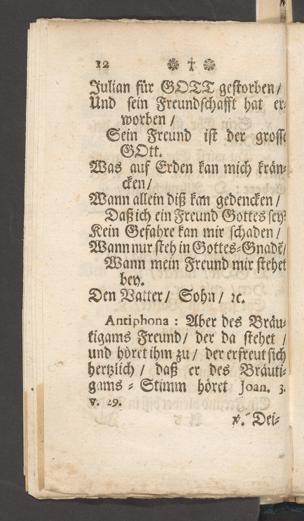 12 ❁ † ❁
Julian für GOTT gestorben/
Und sein Freundschafft hat er-
worben/
Sein Freund ist der grosse
GOtt.
Was auf Erden kan mich krän-
cken/
Wann allein diß kan gedencken/
Daß ich ein Freund Gottes sey:
Kein Gefahre kan mir schaden/
Wann nur steh in Gottes-Gnadē/
Wann mein Freund mir stehet
bey.
Den Vatter/ Sohn/ ꝛc.
Antiphona: Aber des Bräu-
tigams Freund/ der da stehet/
und höret ihm zu/ der erfreut sich
hertzlich/ daß er des Bräuti-
gams-Stimm höret Joan. 3.
v. 29.
℣. Dei-